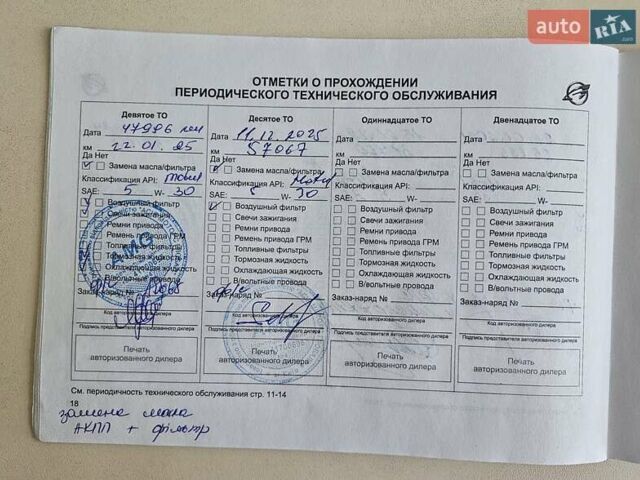 auto RIA
.com
ОТМЕТКИ О ПРОХОЖДЕНИИ
ПЕРИОДИЧЕСКОГО ТЕХНИЧЕСКОГО ОБСЛУЖИВАНИЯ
Девятое ТО
Дата 47986 км
км 22.01.25
Да Нет
Замена масла/фильтра
Классификация API: mobil
SAE: 5 W- 30
Воздушный фильтр
Свечи зажигания
Ремни привода
Ремень привода ГРМ
Топливные фильтры
Тормозная жидкость
Охлаждающая жидкость
В/вольтные провода
Заказ-наряд №
AMG
Код авторизованного дилера
Подпись представителя авторизованного дилера
Печать
авторизованного дилера
Десятое ТО
Дата 11.12.2025
км 57067
Да Нет
Замена масла/фильтра
Классификация API: Motul
SAE: 5 W- 30
Воздушный фильтр
Свечи зажигания
Ремни привода
Ремень привода ГРМ
Топливные фильтры
Тормозная жидкость
Охлаждающая жидкость
В/вольтные провода
Заказ-наряд №
Код авторизованного дилера
Подпись представителя авторизованного дилера
Печать
авторизованного дилера
Одиннадцатое ТО
Дата
км
Да Нет
Замена масла/фильтра
Классификация API:
SAE: W-
Воздушный фильтр
Свечи зажигания
Ремни привода
Ремень привода ГРМ
Топливные фильтры
Тормозная жидкость
Охлаждающая жидкость
В/вольтные провода
Заказ-наряд №
Код авторизованного дилера
Подпись представителя авторизованного дилера
Печать
авторизованного дилера
Двенадцатое ТО
Дата
км
Да Нет
Замена масла/фильтра
Классификация API:
SAE: W-
Воздушный фильтр
Свечи зажигания
Ремни привода
Ремень привода ГРМ
Топливные фильтры
Тормозная жидкость
Охлаждающая жидкость
В/вольтные провода
Заказ-наряд №
Код авторизованного дилера
Подпись представителя авторизованного дилера
Печать
авторизованного дилера
См. периодичность технического обслуживания стр. 11-14
18
заміна масла
АКПП + фільтр